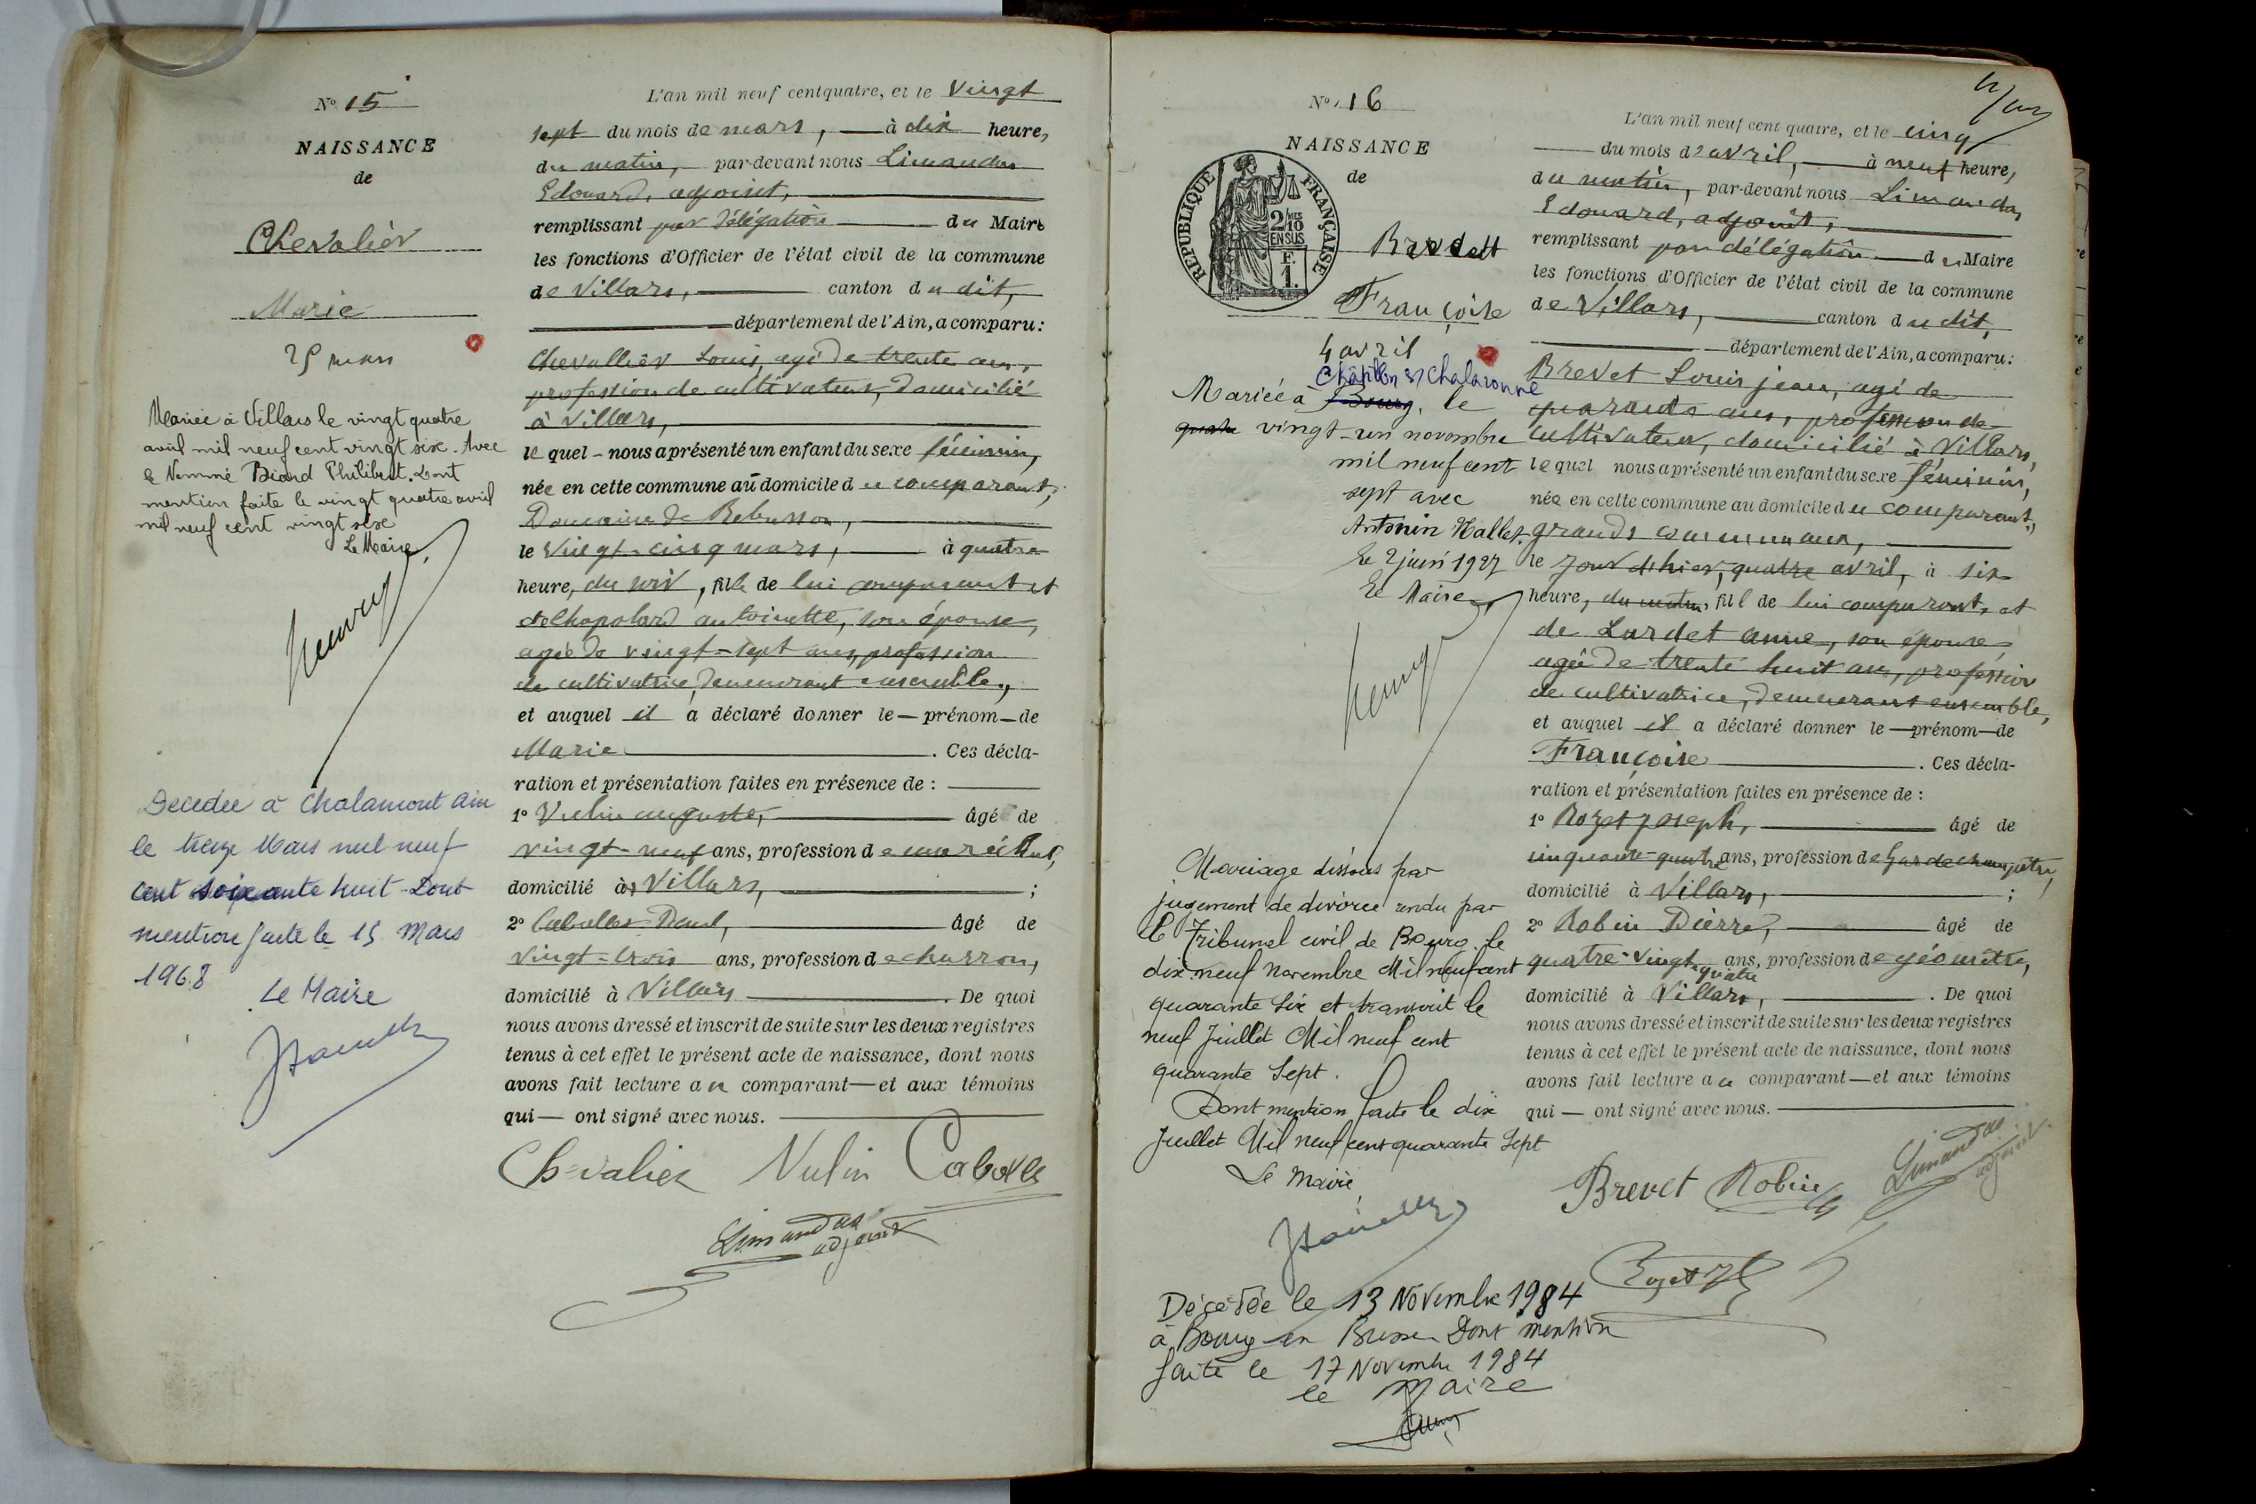 N° 15
NAISSANCE
de
Chevalier
Marie
25 mars
Mariée à Villars le vingt quatre
avril mil neuf cent vingt six. Avec
le Nommé Biard Philibert. Dont
mention faite le vingt quatre avril
mil neuf cent vingt six
Le Maire
Décédée à Chalamont Ain
le treize Mars mil neuf
cent soixante huit - Dont
mention faite le 15 Mars
1968
Le Maire
L'an mil neuf cent quatre, et le vingt
sept du mois de mars, à dix heure,
du matin, par-devant nous Limandas
Edouard, adjoint,
remplissant par délégation du Maire
les fonctions d'Officier de l'état civil de la commune
de Villars, canton du dit,
département de l'Ain, a comparu :
Chevallier Louis, agé de trente ans,
profession de cultivateur, domicilié
à Villars,
le quel - nous a présenté un enfant du sexe féminin,
née en cette commune au domicile du comparant,
Domaine de Rebusson,
le vingt-cinq mars, à quatre
heure, du soir, fille de lui comparant et
de Chapolard antoinette, son épouse,
agée de vingt-sept ans, profession
de cultivatrice, demeurant ensemble,
et auquel il a déclaré donner le — prénom — de
Marie . Ces décla-
ration et présentation faites en présence de :
1° Vulin auguste, âgé de
vingt-neuf ans, profession de maréchal,
domicilié à Villars, ;
2° , âgé de
vingt-trois ans, profession de charron,
domicilié à Villars . De quoi
nous avons dressé et inscrit de suite sur les deux registres
tenus à cet effet le présent acte de naissance, dont nous
avons fait lecture au comparant — et aux témoins
qui — ont signé avec nous.
Chevalier Vulin
Limandas
adjoint
N° 16
NAISSANCE
de
RÉPUBLIQUE FRANÇAISE
2/10
EN SUS
F.
1.
Françoise
4 avril
Châtillon s/ Chalaronne
Mariée à Bourg, le
vingt-un novembre
mil neuf cent
sept avec
Antonin Hallet.
Le 2 juin 1927
Le Maire,
Mariage dissous par
jugement de divorce rendu par
le Tribunal civil de Bourg. le
dix neuf novembre Mil neuf cent
quarante Six et transcrit le
neuf Juillet Mil neuf cent
quarante Sept.
Dont mention faite le dix
Juillet Mil neuf cent quarante Sept
Le Maire
Décédée le 13 Novembre 1984
à Bourg en Bresse Dont mention
faite le 17 Novembre 1984
le Maire
L'an mil neuf cent quatre, et le cinq
du mois d'avril, à neuf heure,
du matin, par-devant nous Limandas
Edouard, adjoint,
remplissant par délégation du Maire
les fonctions d'Officier de l'état civil de la commune
de Villars, canton du dit,
département de l'Ain, a comparu :
Brevet Louis jean, agé de
quarante ans, profession de
cultivateur, domicilié à Villars,
le quel nous a présenté un enfant du sexe féminin,
née en cette commune au domicile du comparant,
grands communaux,
le jour d'hier, quatre avril, à six
heure, du matin, fill de lui comparant, et
de Lardet anne, son épouse,
agée de trente huit ans, profession
de cultivatrice, demeurant ensemble,
et auquel il a déclaré donner le — prénom — de
Françoise . Ces décla-
ration et présentation faites en présence de :
1° Rozet joseph, âgé de
cinquante-quatre ans, profession de Garde champêtre,
domicilié à Villars, ;
2° Robin Pierre, âgé de
quatre-vingt-quatre ans, profession de géomètre,
domicilié à Villars, . De quoi
nous avons dressé et inscrit de suite sur les deux registres
tenus à cet effet le présent acte de naissance, dont nous
avons fait lecture au comparant — et aux témoins
qui — ont signé avec nous.
Brevet Robin
Limandas
adjoint